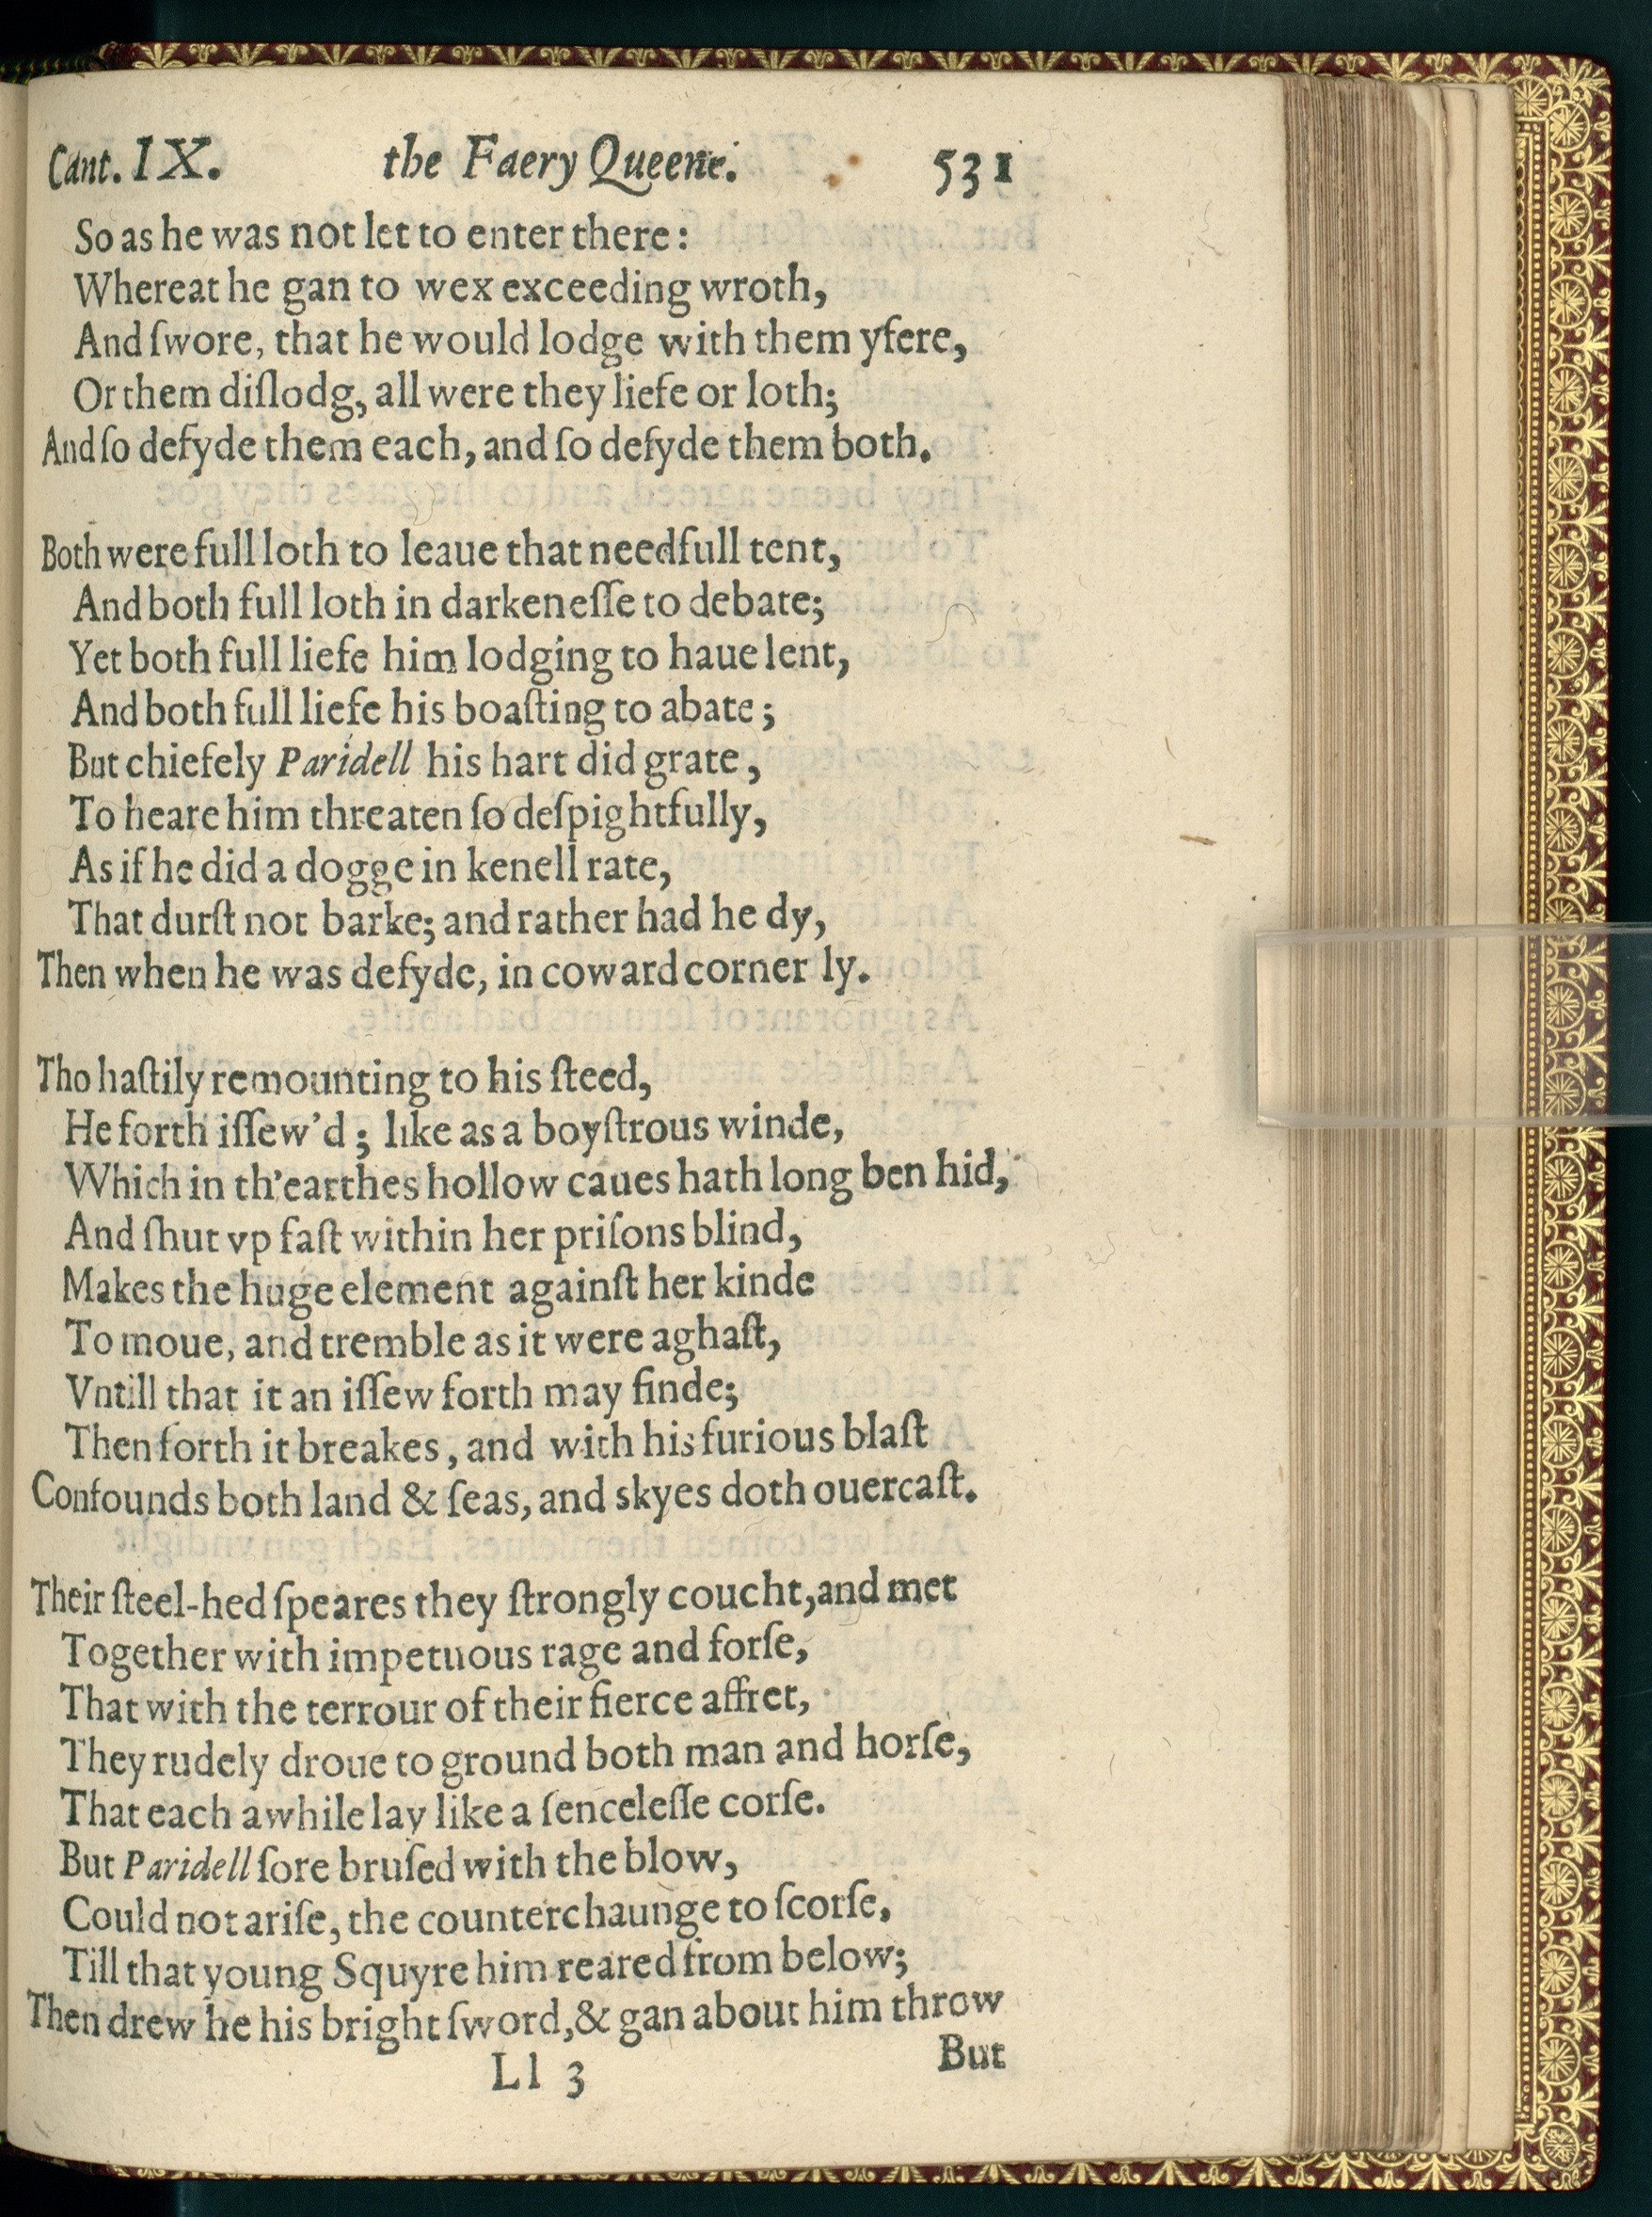 Cant. IX. the Faery Queene. 531
So as he was not let to enter there:
Whereat he gan to wex exceeding wroth,
And ſwore, that he would lodge with them yfere,
Or them diſlodg, all were they liefe or loth;
And ſo defyde them each, and ſo defyde them both.
Both were full loth to leaue that needfull tent,
And both full loth in darkeneſſe to debate;
Yet both full liefe him lodging to haue lent,
And both full liefe his boaſting to abate;
But chiefely Paridell his hart did grate,
To heare him threaten ſo deſpightfully,
As if he did a dogge in kenell rate,
That durſt not barke; and rather had he dy,
Then when he was defyde, in coward corner ly.
Tho haſtily remounting to his ſteed,
He forth iſſew'd; like as a boyſtrous winde,
Which in th'earthes hollow caues hath long ben hid,
And ſhut vp faſt within her priſons blind,
Makes the huge element againſt her kinde
To moue, and tremble as it were aghaſt,
Vntill that it an iſſew forth may finde;
Then forth it breakes, and with his furious blaſt
Confounds both land & ſeas, and skyes doth ouercaſt.
Their ſteel-hed ſpeares they ſtrongly coucht, and met
Together with impetuous rage and forſe,
That with the terrour of their fierce affret,
They rudely droue to ground both man and horſe,
That each awhile lay like a ſenceleſſe corſe.
But Paridell ſore bruſed with the blow,
Could not ariſe, the counterchaunge to ſcorſe,
Till that young Squyre him reared from below;
Then drew he his bright ſword, & gan about him throw
Ll 3 But